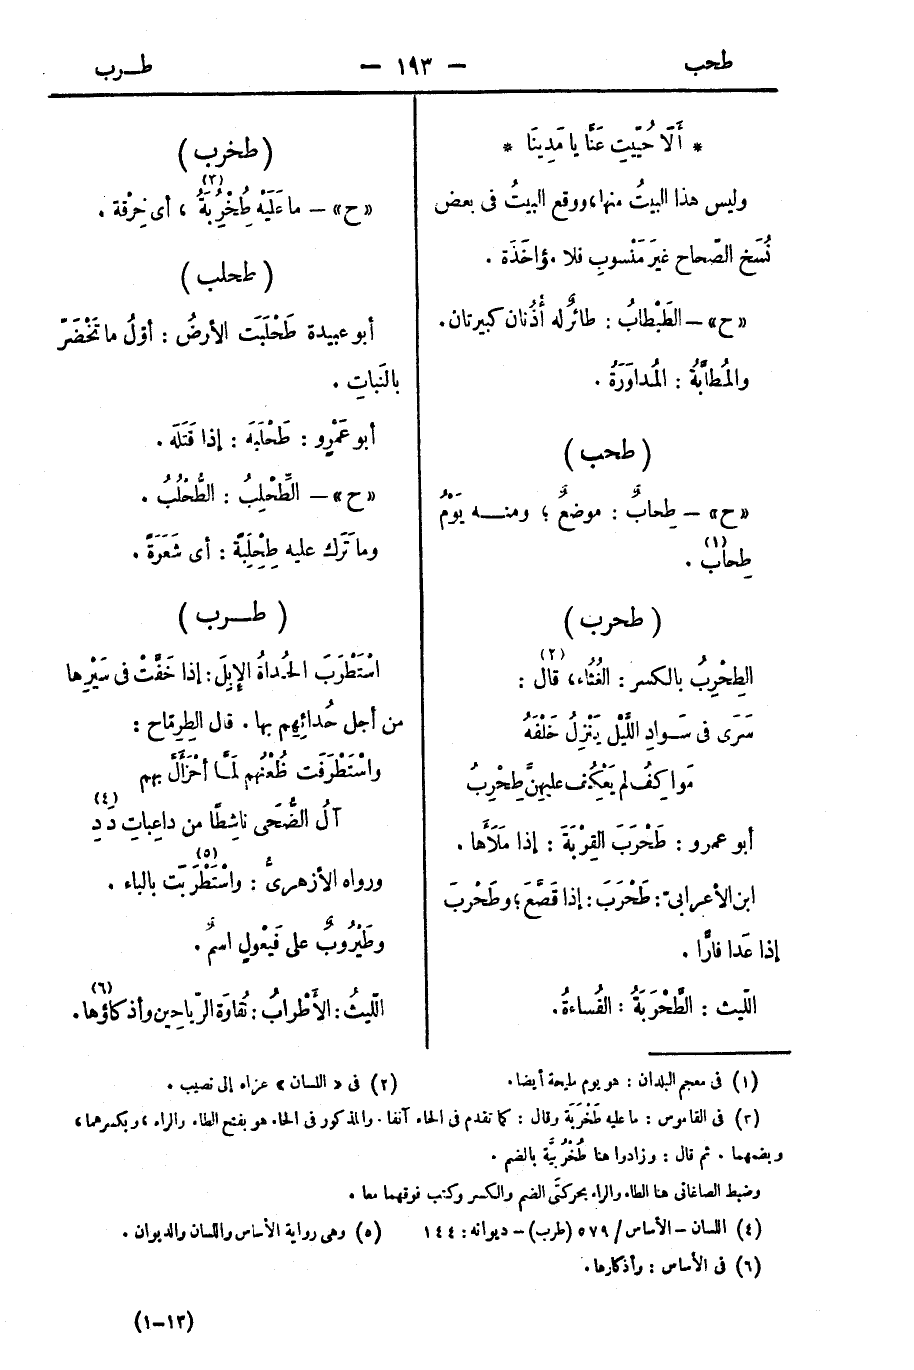 طحب — ١٩٣ — طــرب
* أَلَا حُيِّيتِ عَنَّا يا مَدِينَا *
وليس هذا البيتُ منها، ووقع البيتُ فى بعض
نُسَخ الصّحاح غيرَ مَنْسوبٍ فلا مؤاخَذَة .
«ح» – الطَبْطابُ : طائرٌ له أُذُنان كبيرتان .
والمُطابَّةُ : المُداوَرَةُ .
( طحب )
«ح» – طِحابٌ : موضعٌ ؛ ومنــه يَوْمُ
طِحاب (١) .
( طحرب )
الطِحْرِبُ بالكسر : الغُثاء (٢)، قال :
سَرَى فى سَــوادِ اللَّيْل يَنْزِلُ خَلْفَهُ
مَواكِفُ لم يَعْكُف عليهِنَّ طِحْرِبُ
أبو عمرو : طَحْرَبَ القِرْبَةَ : إذا مَلَأَها .
ابن الأعرابىّ : طَحْرَبَ : إذا قَصَّعَ ؛ وطَحْرَبَ
إذا عَدا فارًّا .
الّليث : الطَّحْرَبَةُ : الفُساءةُ .
( طخرب )
«ح» – ما عَلَيْه طُخْرُبَةٌ (٣) ، أى خِرْقة .
( طحلب )
أبو عبيدة طَحْلَبَت الأرضُ : أوّلُ ما تَخْضَرّ
بالنَباتِ .
أبو عَمْرٍو : طَحْلَبَه : إذا قَتَلَه .
«ح» – الطِّحْلِبُ : الطُّحْلُبُ .
وما تَرَك عليه طِحْلِبَةً : أى شَعَرَةً .
( طــرب )
اسْتَطْرَبَ الحُداةُ الإبِلَ : إذا خَفَّتْ فى سَيْرِها
من أجل حُدائِهِم بها . قال الطِرِمّاح :
واسْتَطْرَفَت ظُعْنُهم لَمَّا أحْزَأَلَّ بهم
آلُ الضُّحَى ناشِطًا من داعِباتِ دَدِ (٤)
ورواه الأزهرىُّ : واسْتَطْرَبَت (٥) بالباء .
وطَيْرُوبٌ على فَيْعُولٍ اسمٌ .
الّليثُ : الأَطْرابُ : نُقاوَة الرّياحين وأذكاؤها (٦) .
(١) فى معجم البلدان : هو يوم مليحة أيضا . (٢) فى « اللسان » عزاه إلى نصيب .
(٣) فى القاموس : ما عليه طَخْرَبَة وقال : كما تقدم فى الحاء آنفا . والمذكور فى الحاء هو بفتح الطاء والراء ، وبكسرهما ،
وبضمهما . ثم قال : وزادوا هنا طُخْرُبيَّة بالضم .
وضبط الصاغانى هنا الطاء والراء بحركتَى الضم والكسر وكتب فوقهما معا .
(٤) اللسان – الأساس / ٥٧٩ (طرب) – ديوانه : ١٤٤ (٥) وهى رواية الأساس واللسان والديوان .
(٦) فى الأساس : وأذكارها .
(١٣–١)